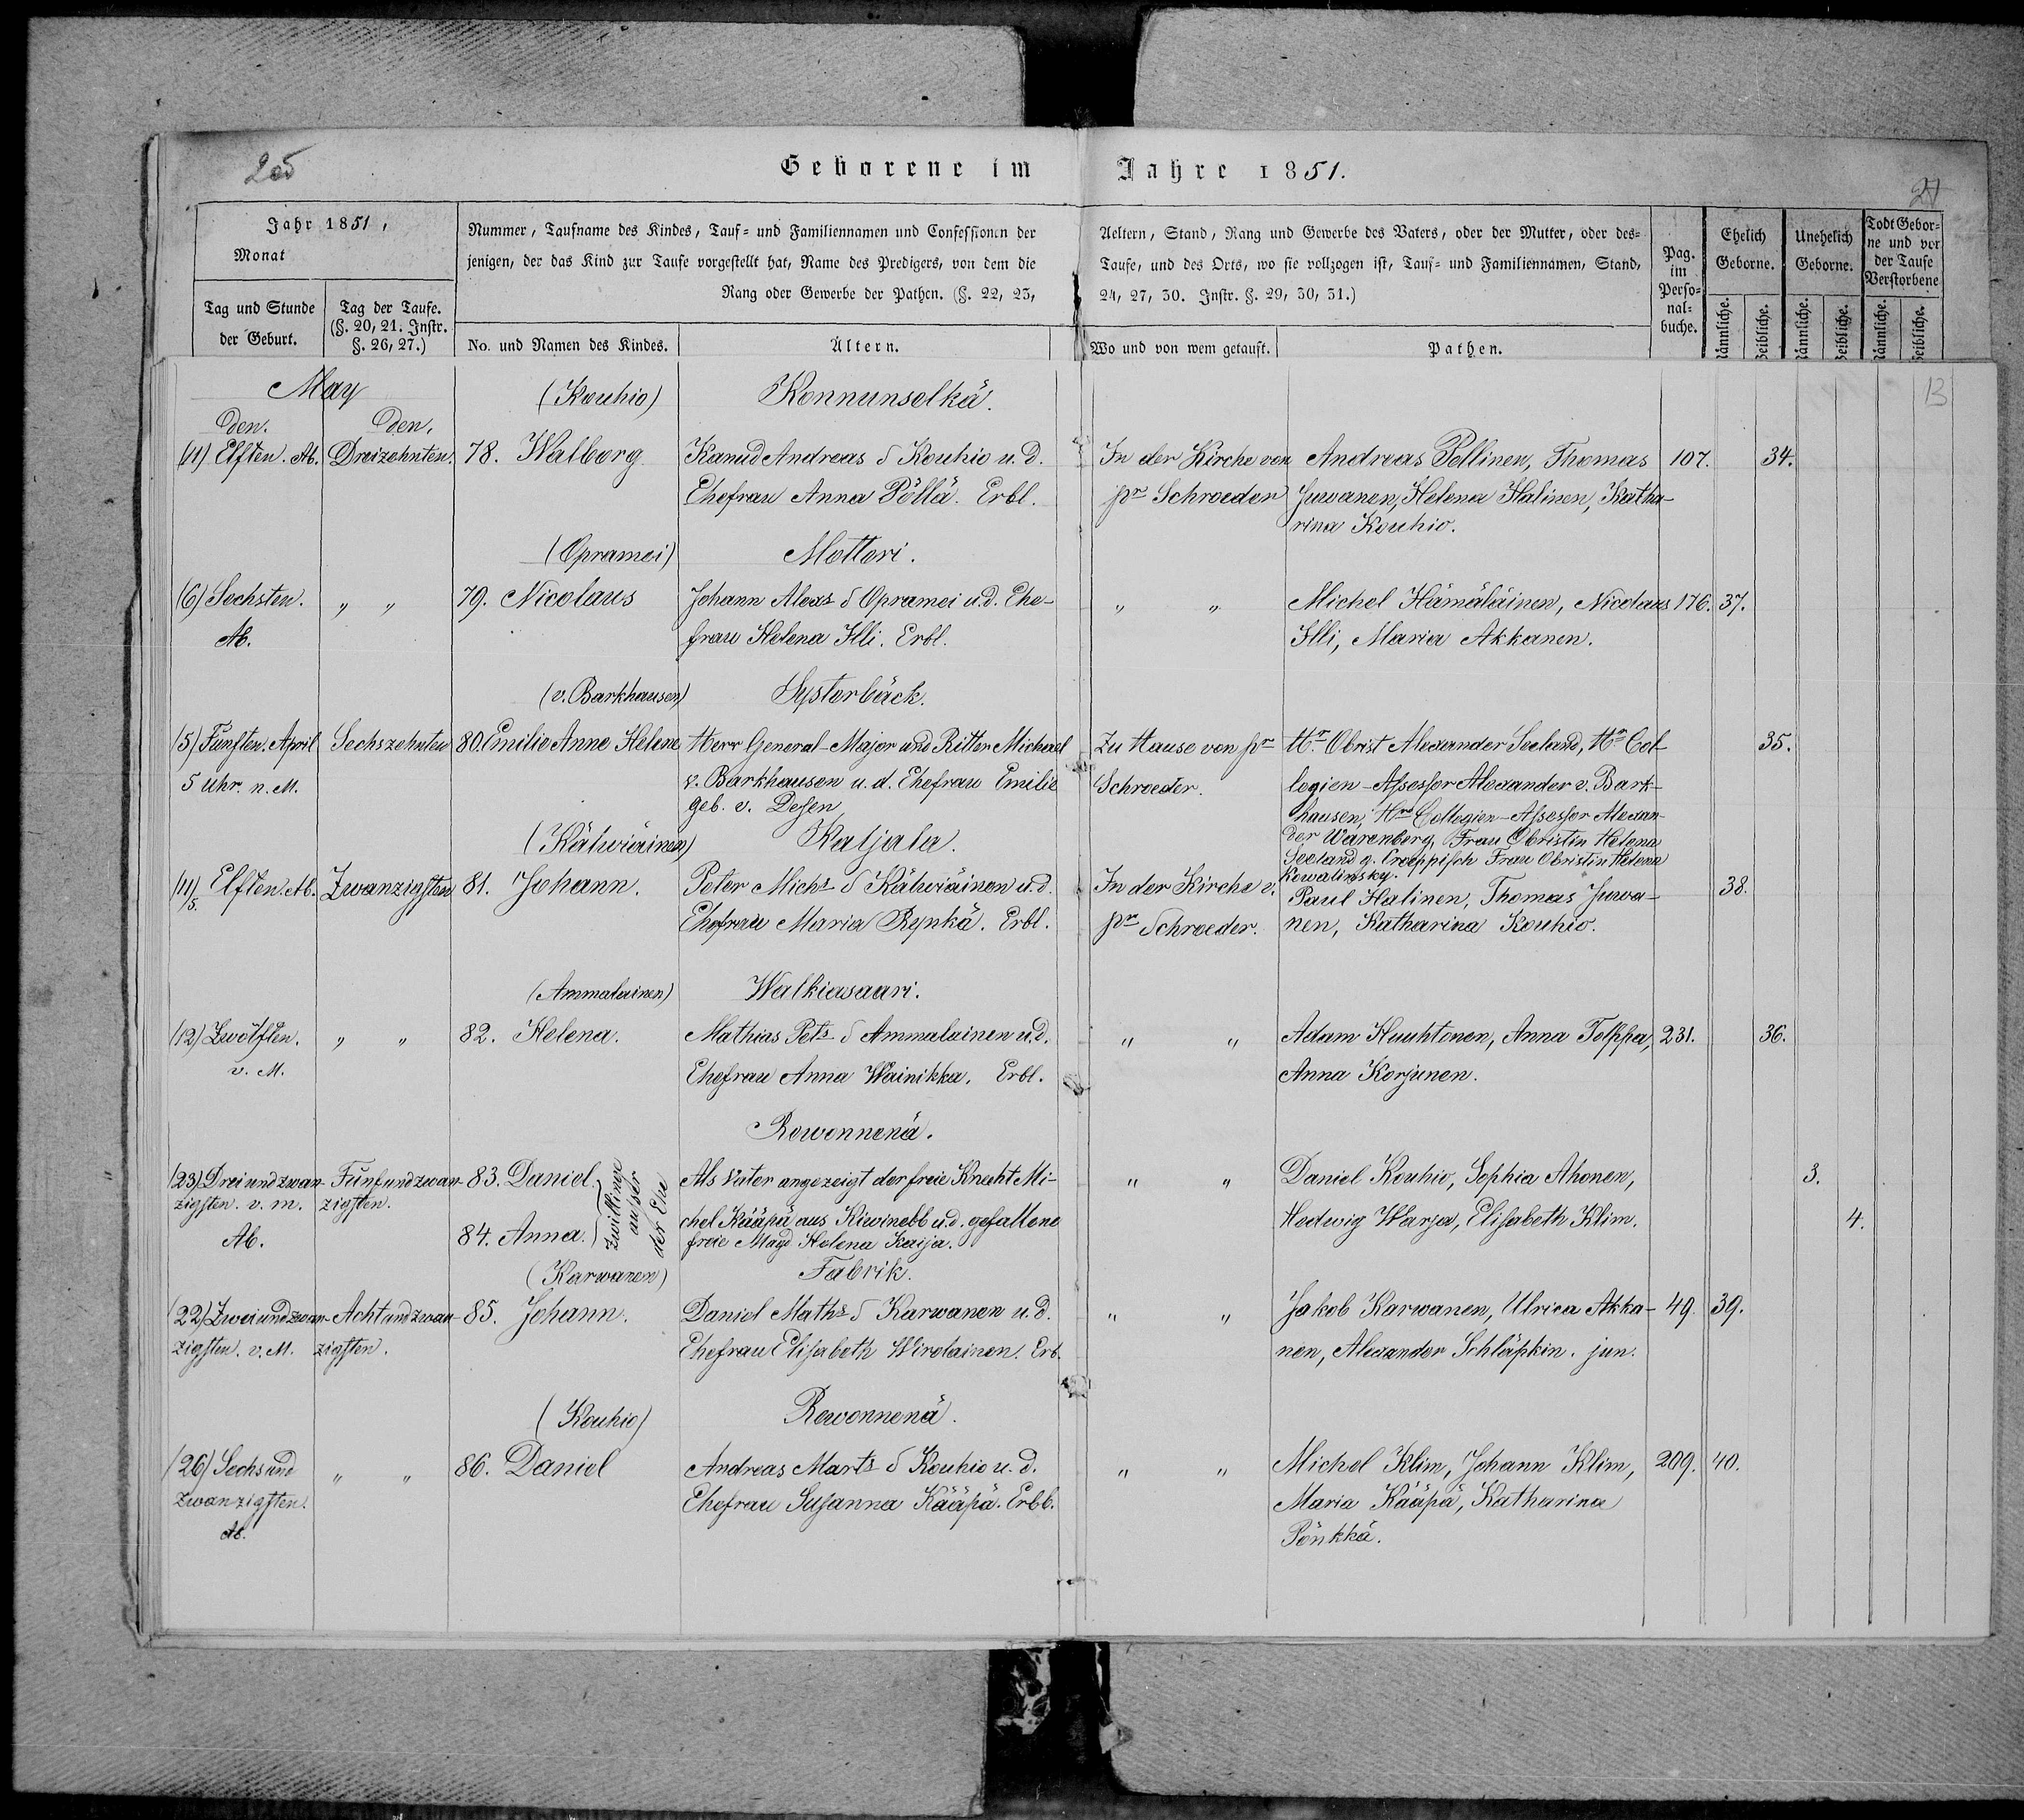 Geborene im Jahre 1851.
Jahr 1851,
Monat
Tag und Stunde der Geburt.
Tag der Taufe. (§. 20, 21. Instr. §. 26, 27.)
Nummer, Taufname des Kindes, Tauf- und Familiennamen und Confessionen der Aeltern, Stand, Rang und Gewerbe des Vaters, oder der Mutter, oder des-
jenigen, der das Kind zur Taufe vorgestellt hat, Name des Predigers, von dem die Taufe, und des Orts, wo sie vollzogen ist, Tauf- und Familiennamen, Stand,
Rang oder Gewerbe der Pathen. (§. 22, 23, 24, 27, 30. Instr. §. 29, 30, 31.)
No. und Namen des Kindes.
Ältern.
Wo und von wem getauft.
Pathen.
Pag. im Perso-nal-buche.
Ehelich Geborne.
Unehelich Geborne.
Todt Gebor-ne und vor der Taufe Verstorbene
13
May
(Kouhio) Konnunselkä.
den. den.
(11) Elften. Ab. Dreizehnten. 78. Walborg Kanud Andreas S Kouhio u. d. In der Kirche von Andreas Pellinen, Thomas 107. 34.
Ehefrau Anna Pöllä. Erbl. pr Schroeder Juwanen, Helena Halinen, Katha-
rina Kouhio.
(Opramei) Mottori.
(6) Sechsten. „ „ 79. Nicolaus Johann Alexs S Opramei u. d. Ehe- „ „ Michel Hämäläinen, Nicolaus 176. 37.
Ab. frau Helena Illi. Erbl. Illi, Maria Akkanen.
(v. Barkhausen) Systerbäck.
(5) Fünften. April Sechszehnten 80. Emilie Anne Helene Herr General-Major und Ritter Michael Zu Hause von pr Hr. Obrist Alexander Seeland, Hr Col- 35.
5 Uhr. n. M. v. Barkhausen u. d. Ehefrau Emilie Schroeder. legien-Assessor Alexander v. Bark-
geb. v. Desen hausen, Hr Collegien-Assessor Alexan-
der Warenberg, Frau Obristin Helena
Seeland g. Frau Obristin Helena
Kowalinsky.
(Kälwiäinen) Kaljala.
(11)/5. Elften. Ab. Zwanzigsten 81. Johann. Peter Michs S Kälwiäinen u. d. In der Kirche v. Paul Halinen, Thomas Juwa- 38.
Ehefrau Maria Rynkä. Erbl. pr Schroeder. nen, Katharina Kouhio.
(Ammalainen) Walkiasaari.
(12) Zwölften. „ „ 82. Helena. Mathias Pets S Ammalainen u. d. „ „ Adam Huuhtonen, Anna Tolppa, 231. 36.
v. M. Ehefrau Anna Wainikka. Erbl. Anna Korjunen.
Rowonnenä.
(23) Dreiundzwan- Fünfundzwan- 83. Daniel. Als Vater angezeigt der freie Knecht Mi- „ „ Daniel Kouhio, Sophia Ahonen, 3.
zigsten. v. m. zigsten.
Zwillinge ausser der Ehe
Ab. 84. Anna. chel Kääpä aus Kiwinebb u. d. gefallene Hedwig Warja, Elisabeth Klim. 4.
freie Magd Helena Kaija.
(Karwanen) Fabrik.
(22) Zweiundzwan- Achtundzwan- 85. Johann. Daniel Maths S Karwanen u. d. „ „ Jakob Karwanen, Ulrica Akka- 49. 39.
zigsten. v. M. zigsten. Ehefrau Elisabeth Wirolainen. Erb. nen, Alexander Schläpkin. jun.
(Kouhio) Rowonnenä.
(26) Sechsund „ „ 86. Daniel Andreas Marts S Kouhio u. d. „ „ Michel Klim, Johann Klim, 209. 40.
zwanzigsten. Ehefrau Susanna Kääpä. Erbb. Maria Kääpä, Katharina
Ab. Pönkkä.